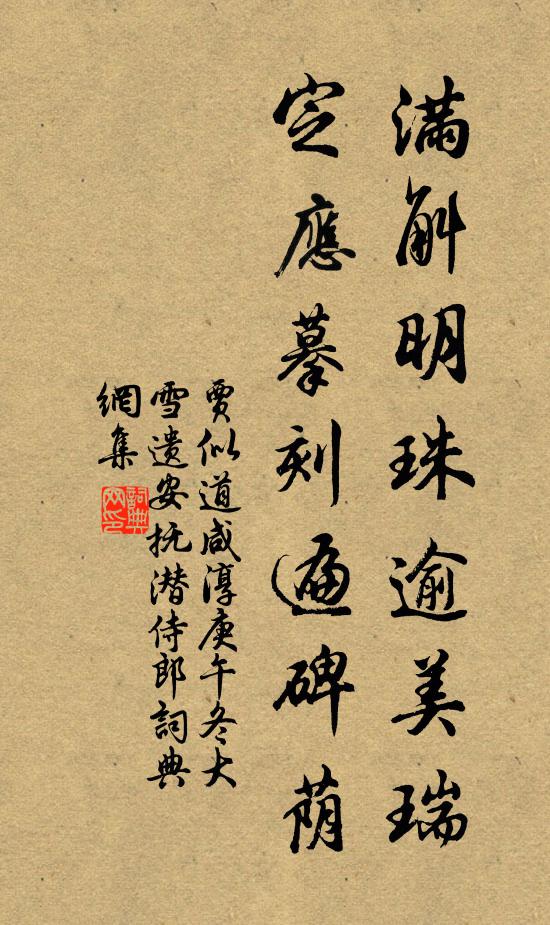 滿斛明珠逾美瑞
定應摹刻遍碑荫
賈似道咸淳庚午冬大
雪遺安抚潜侍郎詞典
網集
詞典網印